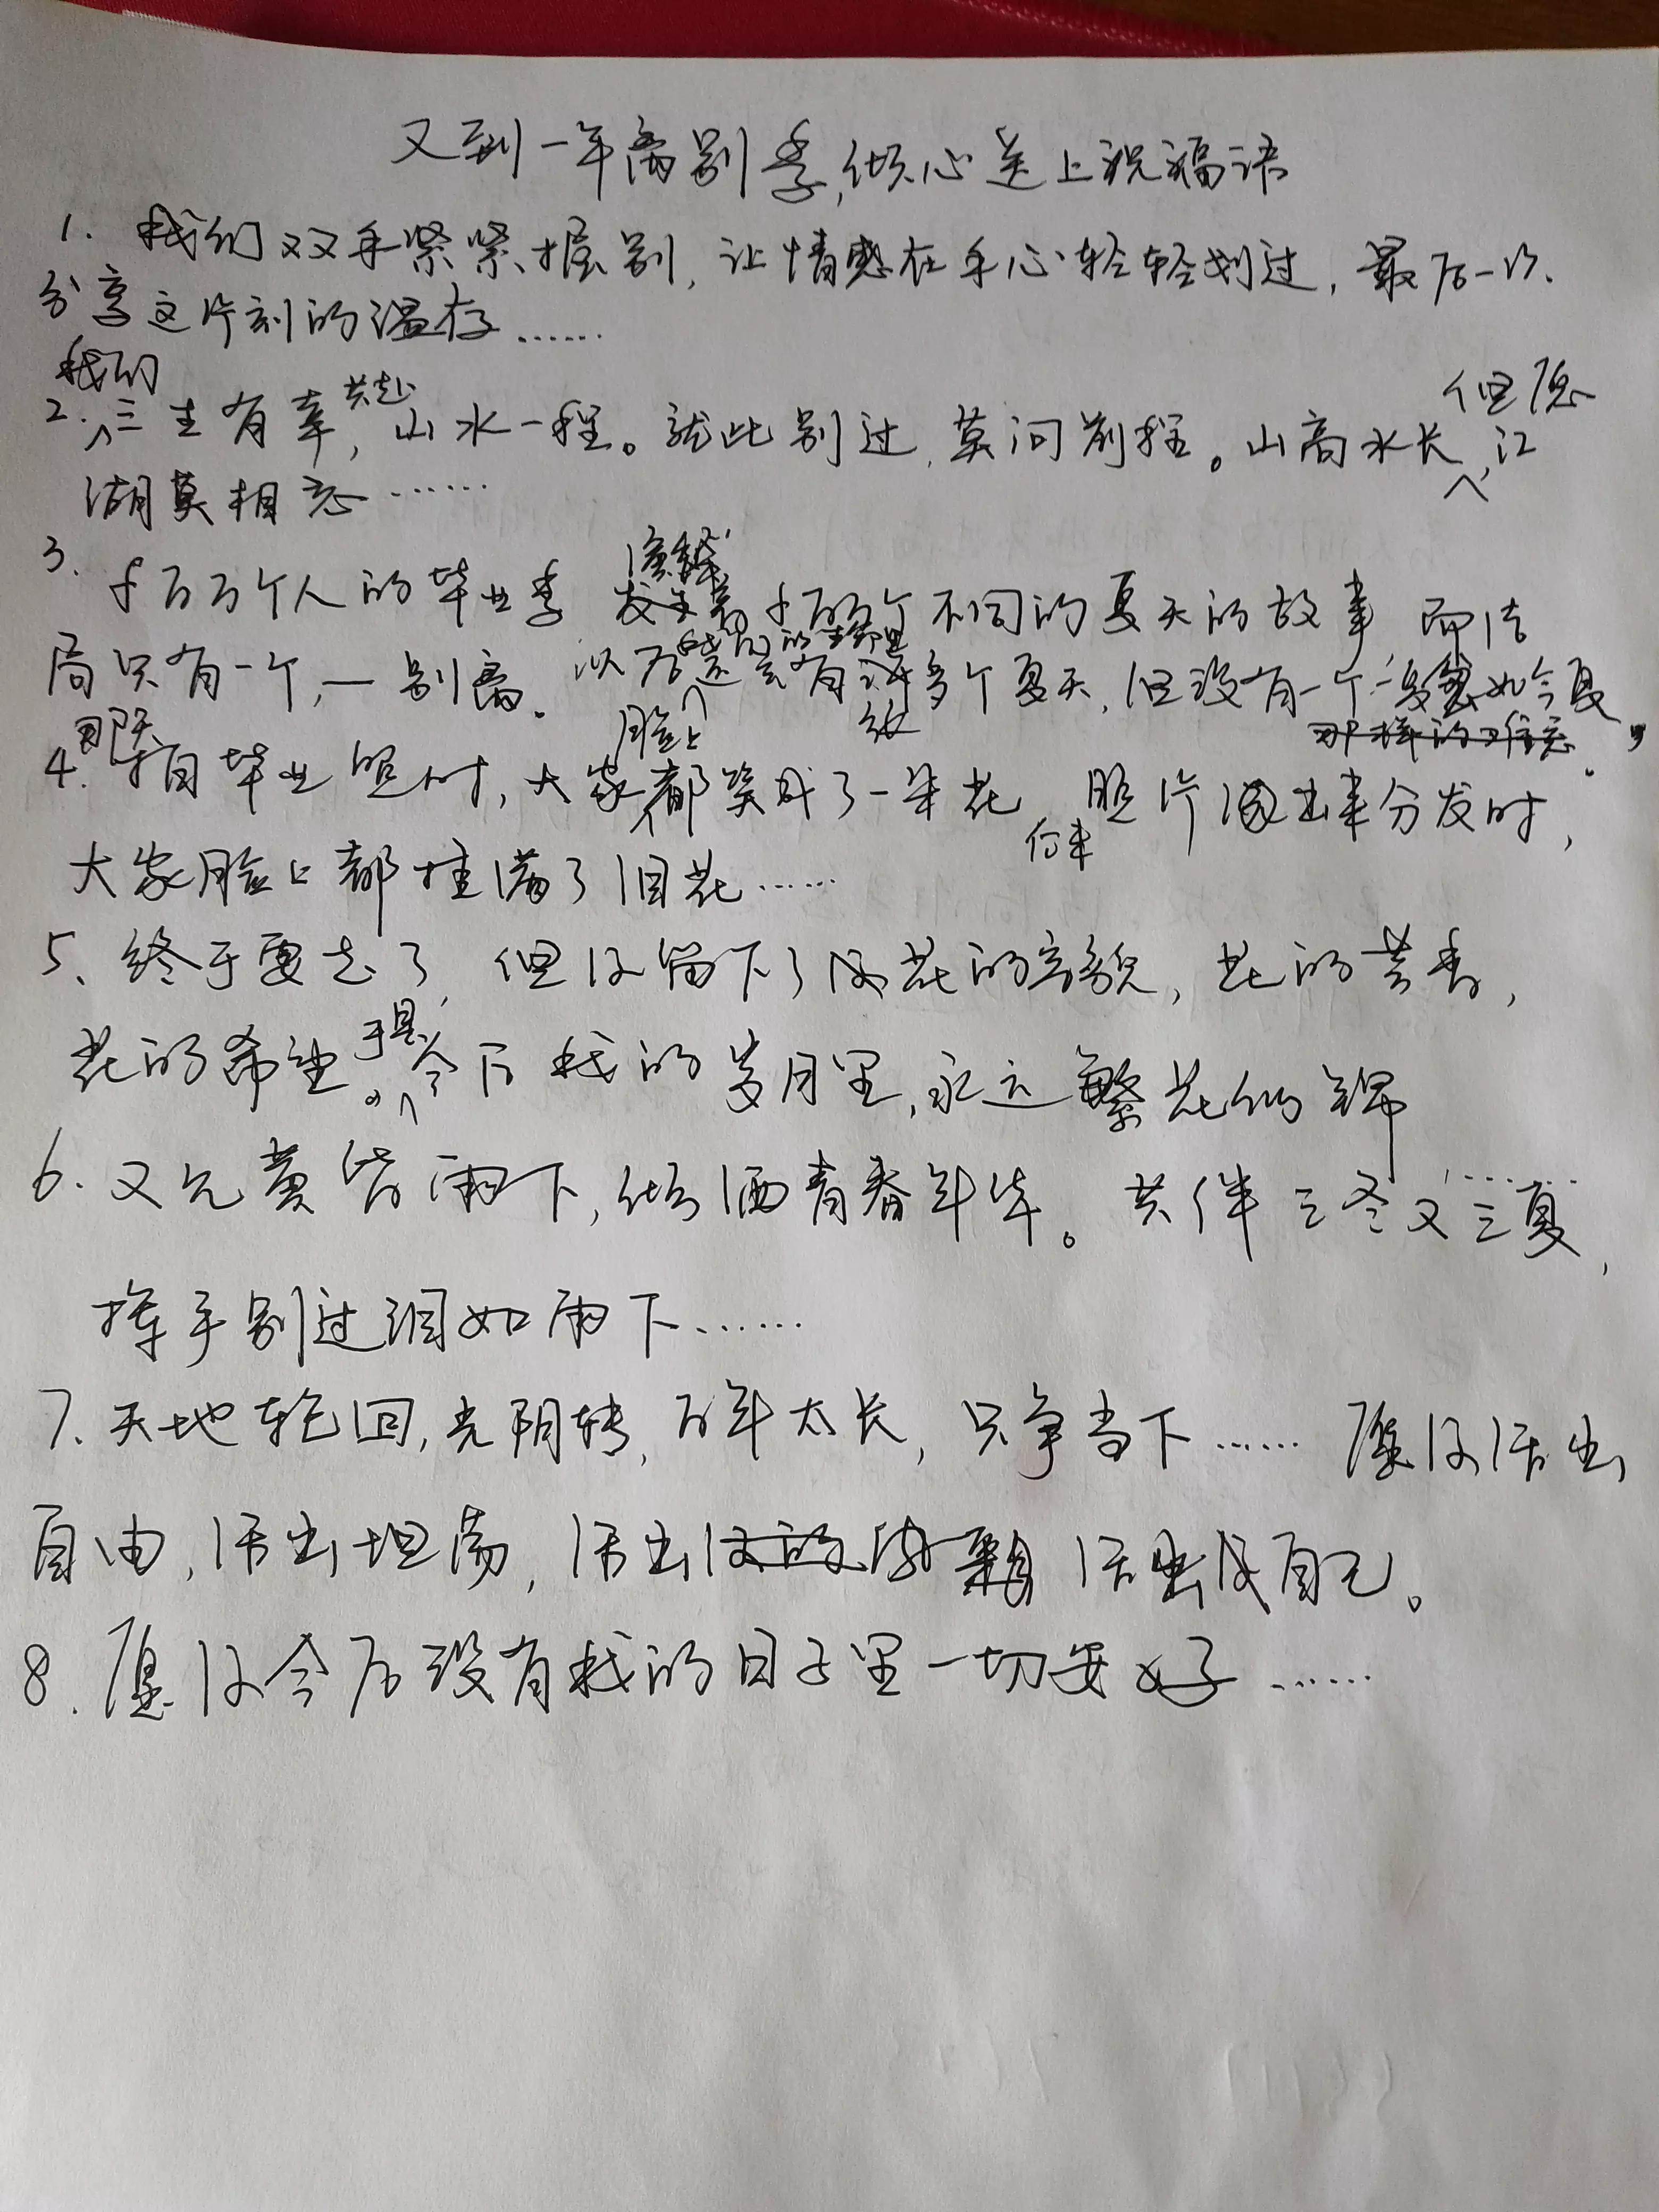 又到一年离别季,倾心送上祝福语
1. 我们双手紧紧握别,让情感在手心轻轻划过,最后一次
分享这片刻的温存……
2. 我们三生有幸,共赴山水一程。就此别过,莫问前程。山高水长,但愿江
湖莫相忘……
3. 千百万个人的毕业季 演绎着千百万个不同的夏天的故事,而结
局只有一个,—别离。以后我们的生命里还会有许多个夏天,但没有一个夏天如今夏,
4. 那天拍毕业照时,大家脸上都笑成了一朵花 照片洗出来分发时,
大家脸上都挂满了泪花……
5、终于要走了,但你留下了如花的容貌,花的芳香,
花的希望。于是,今后我的岁月里,永远繁花似锦
……
6. 又见黄皆雨下,倾洒青春年华。共伴三冬又三夏,
挥手别过泪如雨下……
7、天地轮回,光阴转,百年太长,只争当下…… 愿你活出
自由,活出坦荡,活出 活出你自己。
8. 愿你今后没有我的日子里一切安好……